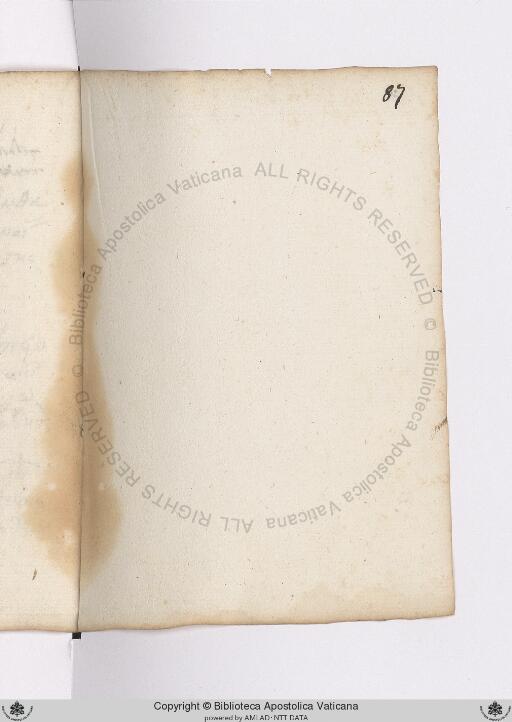 87
Biblioteca Apostolica Vaticana ALL RIGHTS RESERVED ©
Biblioteca Apostolica Vaticana ALL RIGHTS RESERVED ©
Copyright © Biblioteca Apostolica Vaticana
powered by AMLAD-NTT DATA